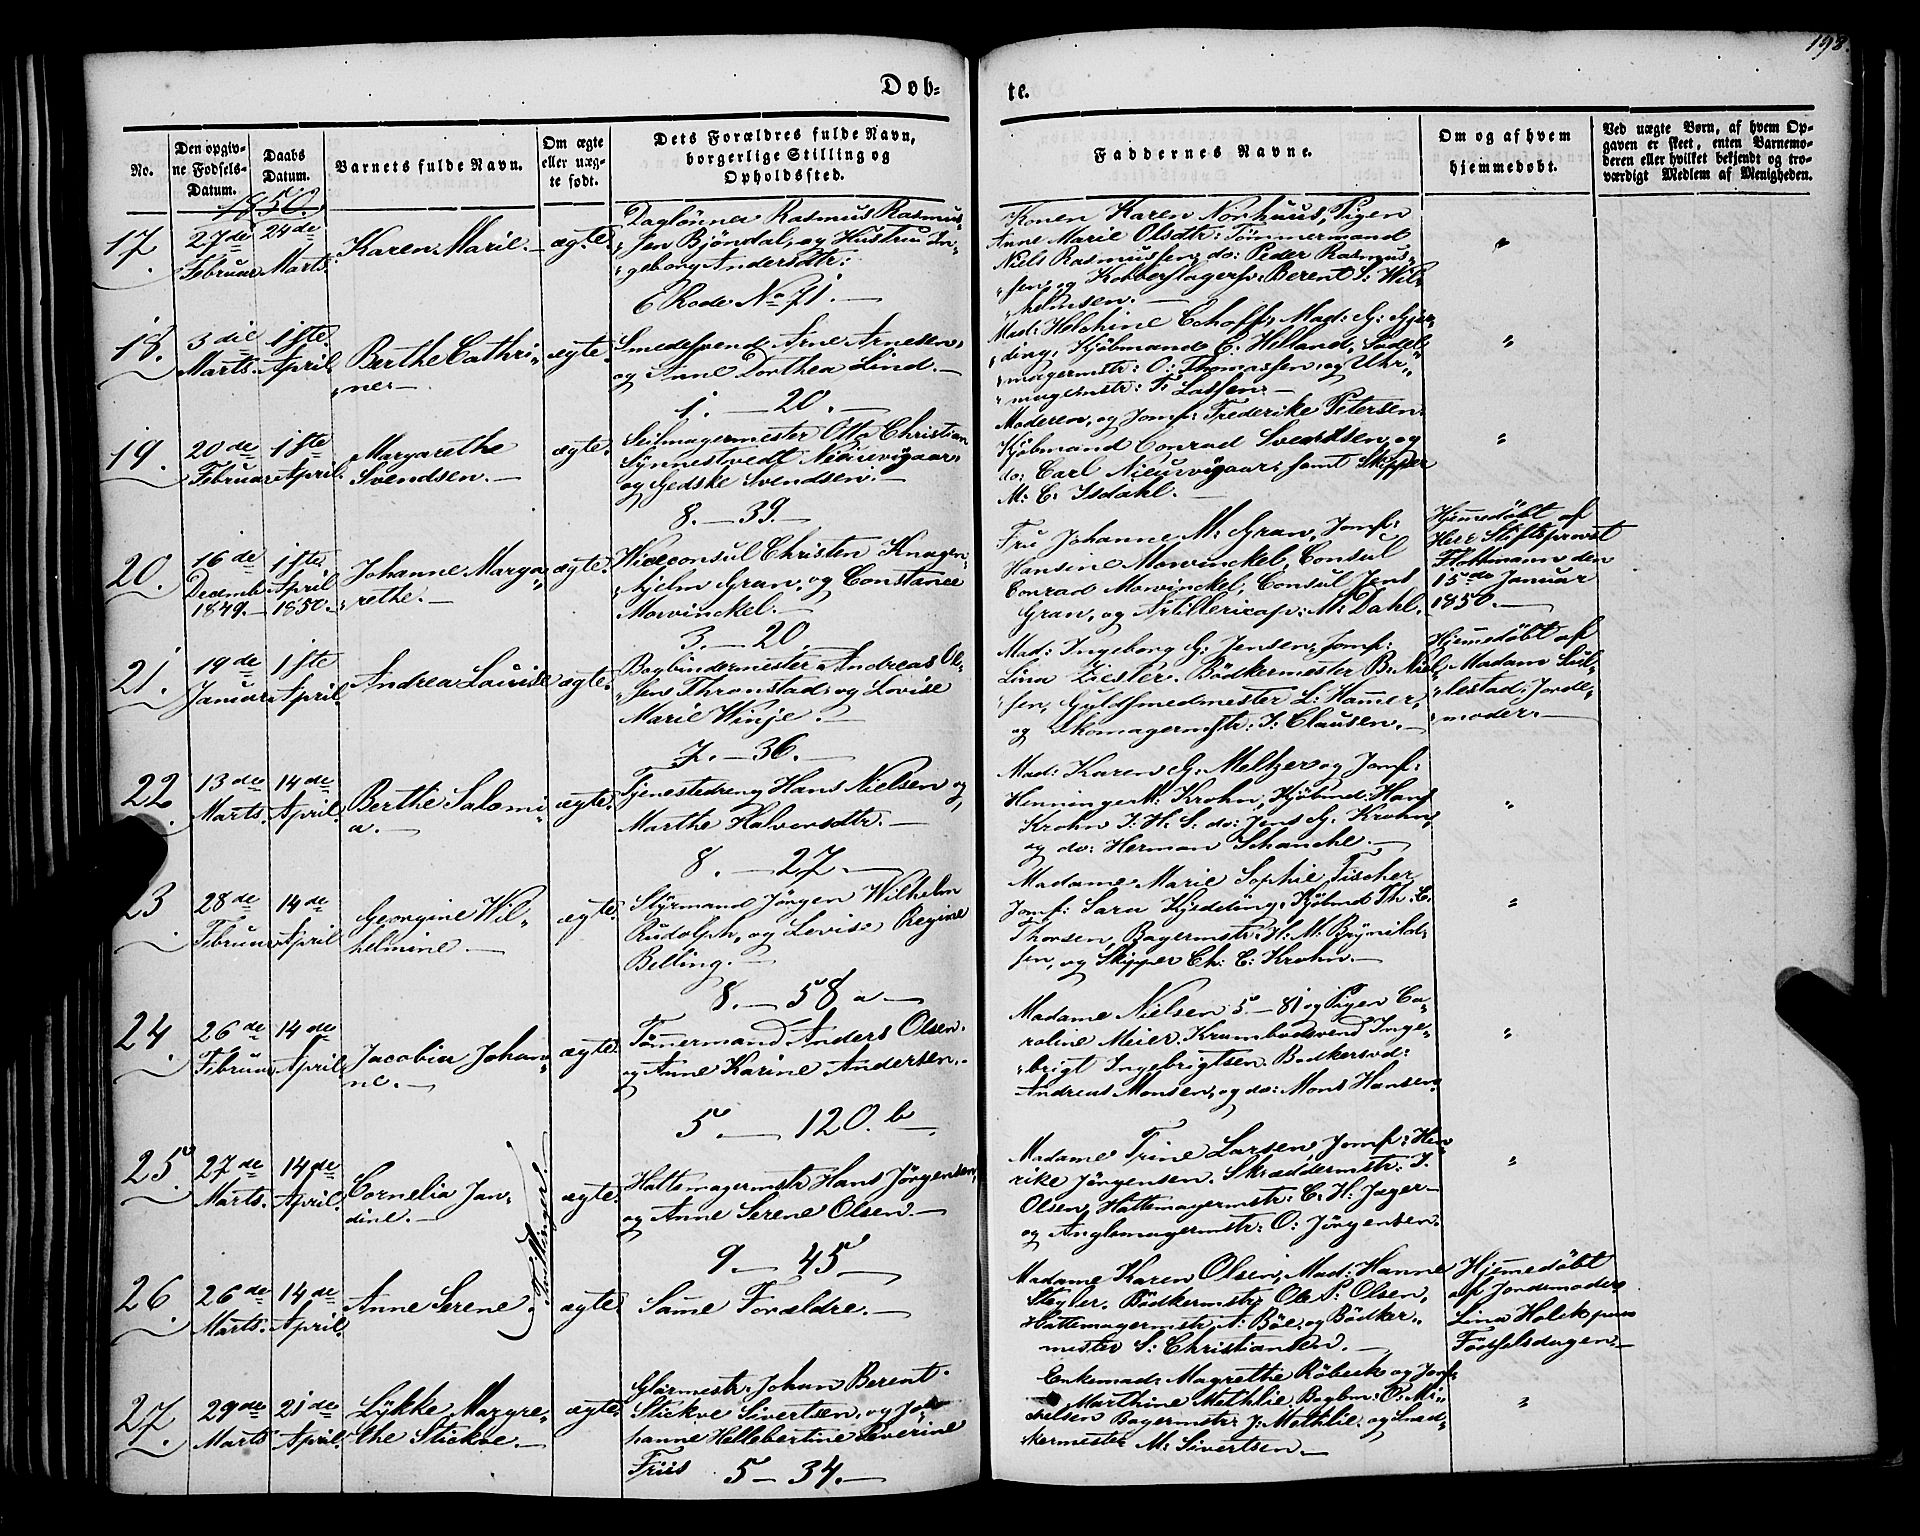 198.
Døb-
te.
No.
Den opgiv-
ne Fødsels-
Datum.
Daabs
Datum.
Barnets fulde Navn.
Om ægte
eller uæg-
te født.
Dets Forældres fulde Navn,
borgerlige Stilling og
Opholdssted.
Faddernes Navne.
Om og af hvem
hjemmedøbt.
Ved uægte Børn, af hvem Op-
gaven er skeet, enten Barnemo-
deren eller hvilket bekjendt og tro-
værdigt Medlem af Menigheden.
1850.
17.
27de
Februar
24de
Marts.
Karen Marie.
ægte.
Daglønner Rasmus Rasmus-
sen Bjöndal, og Hustru In-
geborg Andersdtr:
6 Rode No 71.
Konen Karen Norhuus, Pigen
Anne Marie Olsdtr: Tømmermand
Niels Rasmussen, do: Peder Rasmus-
sen, og Kobberslagersv: Berent S: Wil-
helmsen.
"
18.
3die
Marts.
1ste
April.
Berthe Cathri-
ne.
ægte.
Smedesvend Arne Arnesen,
og Anne Dorthea Lind.
1. - 20.
Mad: Helchine Mad: G: Gjer-
ding, Kjöbmand C: Helland, Sadel-
magermstr: O: Thomassen, og Uhr-
magermstr: F: Lassen.
"
19.
20de
Februar
1ste
April.
Margarethe
Svendsen.
ægte.
Seilmagermester Otto Christian
Sÿnnestvedt Nieuwejaar,
og Gedske Svendsen.
8. - 39.
Moderen, og Jomf: Frederike Petersen.
Kjöbmand Conrad Svendsen, og
do: Carl Nieuwejaar, samt Skipper
M: C: Isdahl.
"
20.
16de
Decemb
1849.
1ste
April
1850.
Johanne Marga-
rethe.
ægte.
Viceconsul Christen Knagen-
hjelm Gran, og Constance
Mowinckel.
3. - 20
Fru Johanne M: Gran, Jomf:
Hansine Mowinckel, Consul
Conrad Mowinckel, Consul Jens
Gran, og Artillericap: M: Dahl.
Hjemedöbt af
Herr Stiftsprovst
den
15de Januar
1850.
21.
19de
Januar
1ste
April.
Andrea Louise
ægte.
Bogbindermester Andreas Ol-
sen Thronstad, og Lovise
Marie Winje.
7. - 36.
Mad: Ingeborg G: Jensen, Jomf:
Lina Ziesler. Bödkermester B: Niel-
sen, Guldsmedmester L: Hamer,
og Skomagermstr: J: Clausen.
Hjemedöbt af
Madam Sul-
lestad, Jorde-
moder.
22.
13de
Marts.
14de
April.
Berthe Salomi-
a.
ægte.
Tjenestedreng Hans Nielsen og
Marthe Halvorsdtr.
8. - 27.
Mad: Karen G: Meltzer og Jomf:
Henninge M: Krohn, Kjöbmd: Hans
Krohn J: H: S: do: Jens G: Krohn,
og do: Herman Schanche.
"
23
28de
Februar
14de
April
Georgine Wil-
helmine.
ægte.
Stÿrmand Jörgen Wilhelm
Rudolph, og Lovise Regine
Belling.
8. - 58 a
Madame Marie Sophie Fischer
Jomf: Sara Kjöbmd Th: C:
Thorsen, Bagermstr: H: M: Brÿnild-
sen, og Skipper Ch: C: Krohn.
"
24.
26de
Februar
14de
April.
Jacobia Johan-
ne.
ægte.
Tömermand Anders Olsen.
og Anne Karine Andersen.
5. 120. b
Madame Nielsen 5. - 81 og Pigen Ca-
roline Meier. Krambodsvend Inge-
brigt Ingebrigtsen. Bödkersvd:
Andreas Monsen, og do: Mons Hansen.
"
25.
27de
Marts.
14de
April.
Cornelia Jan-
dine.
Tvillinger.
ægte.
Hattemagermstr Hans Jörgensen,
og Anne Serene Olsen.
9 - 45
Madame Trine Larsen, Jomf: Hen
rike Jörgensen. Skræddermstr: J.
Olsen, Hattemagermstr: C: H: Jæger
og Anglomagermstr: O: Jörgensen.
"
26.
26de
Marts.
14de
April.
Anne Serene.
ægte.
Same Forældre.
Madame Karen Olsen, Mad: Hanne
Stegler. Bödkermstr: Ole P: Olsen,
Hattemagermstr A: Böe, og Bödker-
mester S: Christiansen.
Hjemedöbt
af Jordemoder
Lina Holck paa
Födselsdagen.
27.
29de
Marts
21de
April.
Lÿkke Margre-
the Stickoe.
ægte.
Glarmestr: Johan Berent
Stickoe Sivertsen, og Jo-
hanne Hellebertine Severine
Friis 5 - 34.
Enkemad: Magrethe Röbeck og Jomf:
Marthine Methlie, Bogbm: O: Mi-
chelsen Bagermstr: J: Methlie, og Sned-
kermester M: Sivertsen.
"